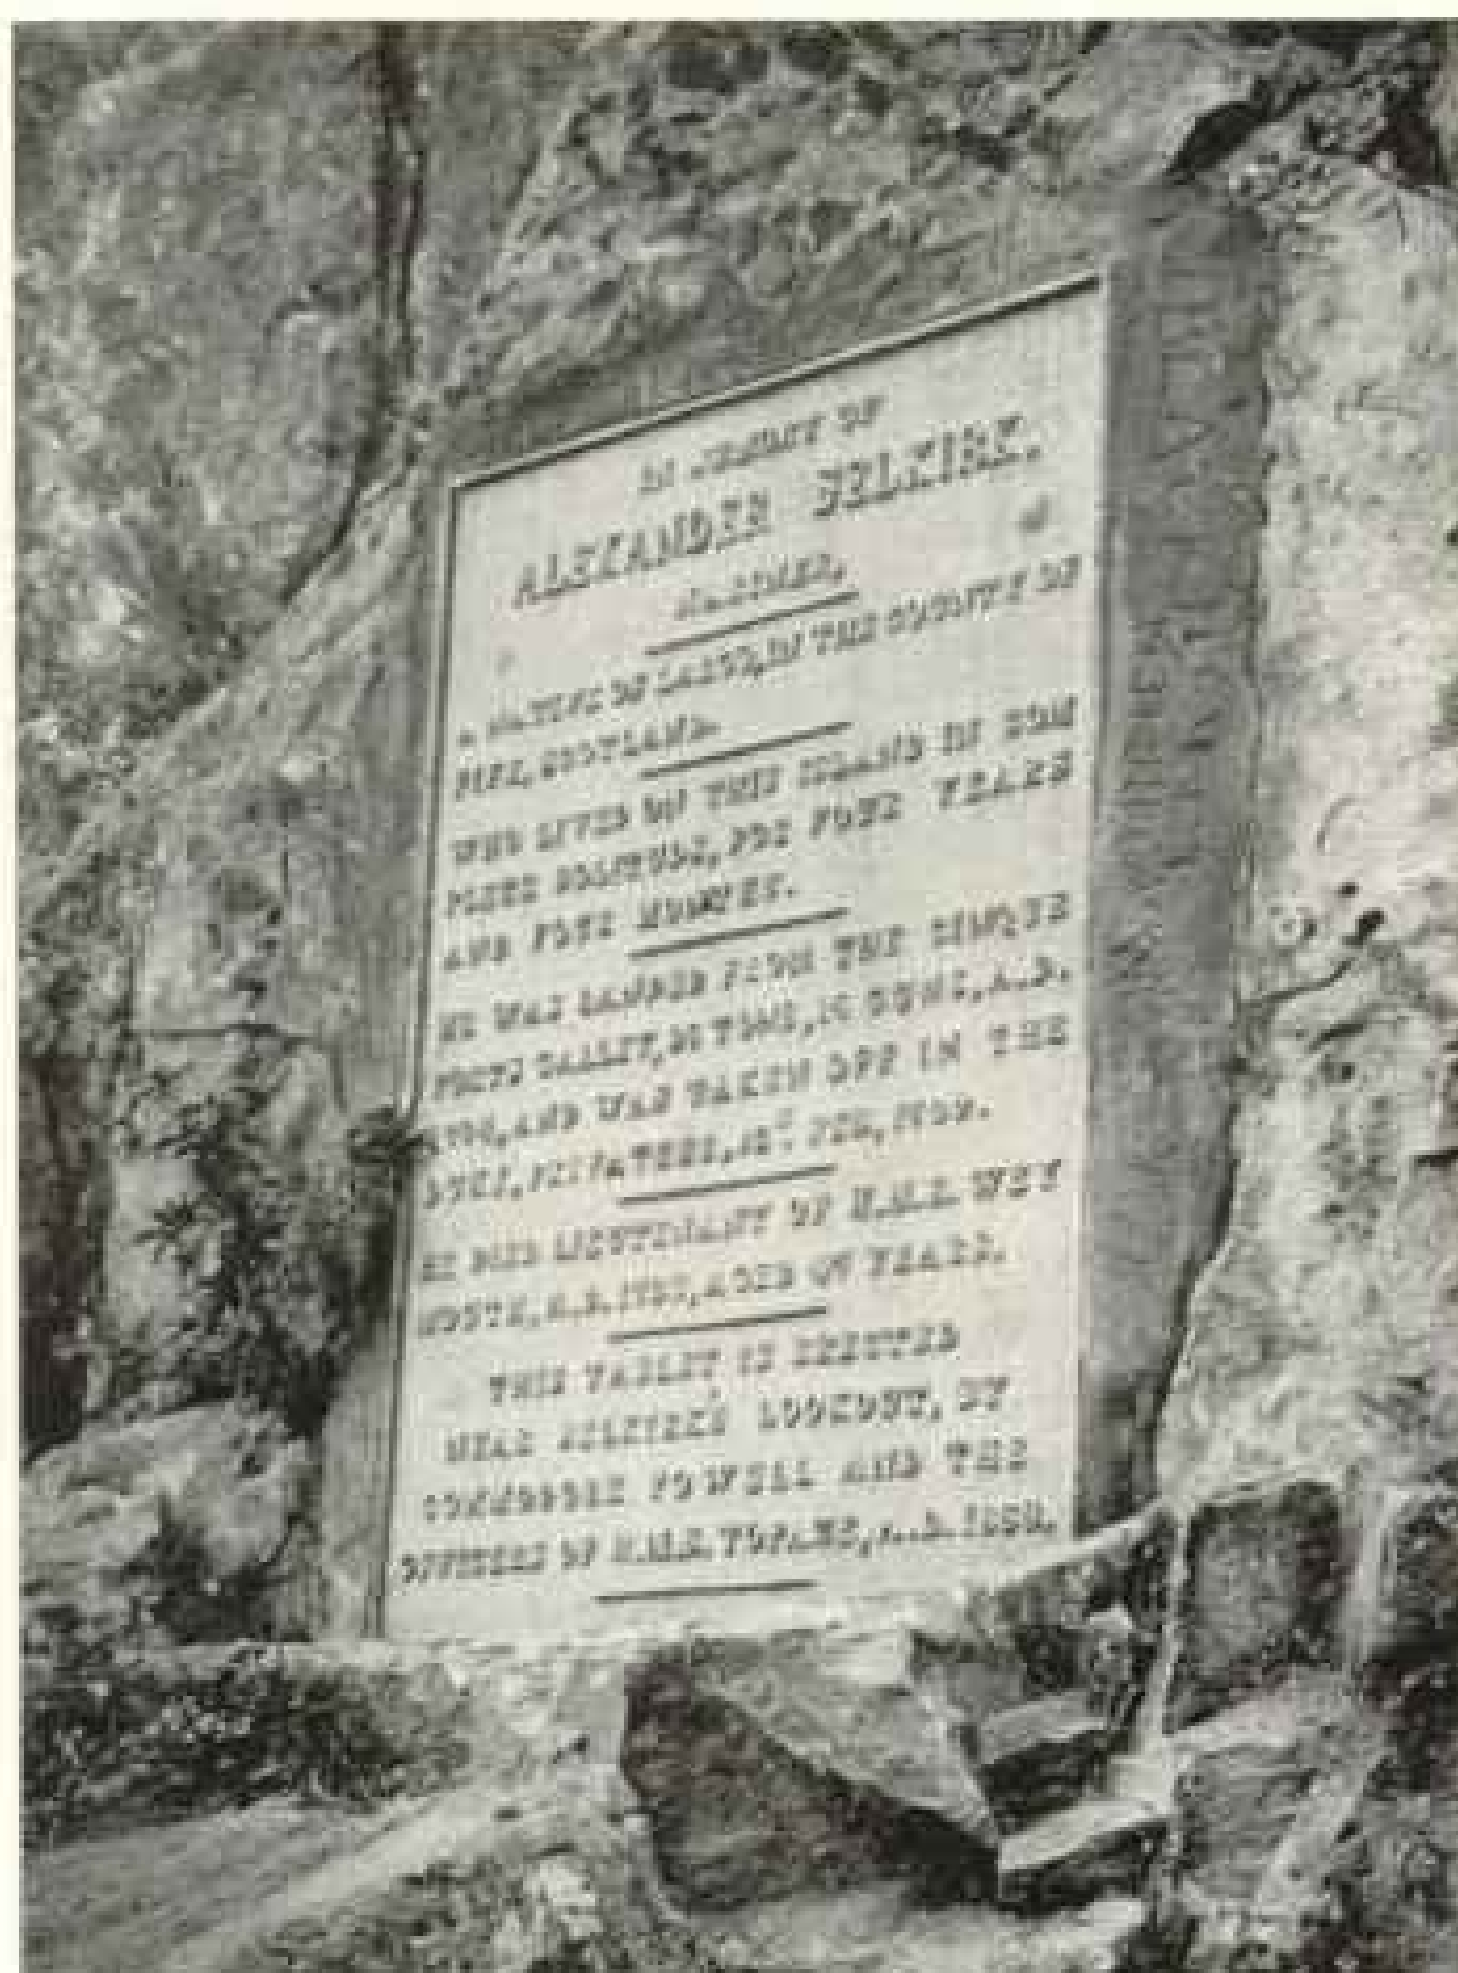 IN MEMORY OF
ALEXANDER SELKIRK,
MARINER,
A NATIVE OF LARGO, IN THE COUNTY OF
FIFE, SCOTLAND.
WHO LIVED ON THIS ISLAND IN COM
PLETE SOLITUDE, FOR FOUR YEARS
AND FOUR MONTHS.
HE WAS LANDED FROM THE CINQUE
PORTS GALLEY, 96 TONS, 16 GUNS, A.D.
1704, AND WAS TAKEN OFF IN THE
DUKE, PRIVATEER, 12TH FEB, 1709.
HE DIED LIEUTENANT OF H.M.S. WEY
MOUTH, A.D. 1723, AGED 47 YEARS.
THIS TABLET IS ERECTED
NEAR SELKIRK'S LOOKOUT, BY
COMMODORE POWELL AND THE
OFFICERS OF H.M.S. TOPAZE, A.D. 1868.